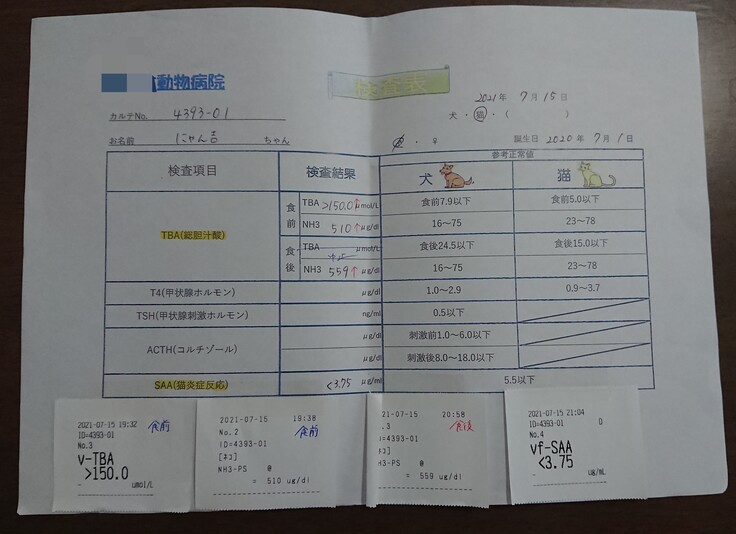 動物病院
検査表
2021年 7月 15日
カルテNo. 4393-01
犬・猫・( )
お名前 にゃん吉 ちゃん
♂・♀ 誕生日 2020年 7月 1日
検査項目 検査結果 参考正常値
犬 猫
TBA(総胆汁酸) 食前 TBA >150.0↑ μmol/L 食前7.9以下 食前5.0以下
NH3 510↑ μg/dl 16~75 23~78
食後 TBA μmol/L 食後24.5以下 食後15.0以下
NH3 559↑ μg/dl 16~75 23~78
T4(甲状腺ホルモン) μg/dl 1.0~2.9 0.9~3.7
TSH(甲状腺刺激ホルモン) ng/ml 0.5以下
ACTH(コルチゾール) μg/dl 刺激前1.0~6.0以下
μg/dl 刺激後8.0~18.0以下
SAA(猫炎症反応) <3.75 μg/ml 5.5以下
2021-07-15 19:32 食前
ID=4393-01
No.3
v-TBA
>150.0
umol/L
2021-07-15 19:38
No.2 食前
ID=4393-01
[ネコ]
NH3-PS @
= 510 ug/dl
21-07-15 20:58
.3 食後
=4393-01
ネコ]
H3-PS @
= 559 ug/dl
2021-07-15 21:04
ID=4393-01 0
No.4
vf-SAA
<3.75
ug/mL